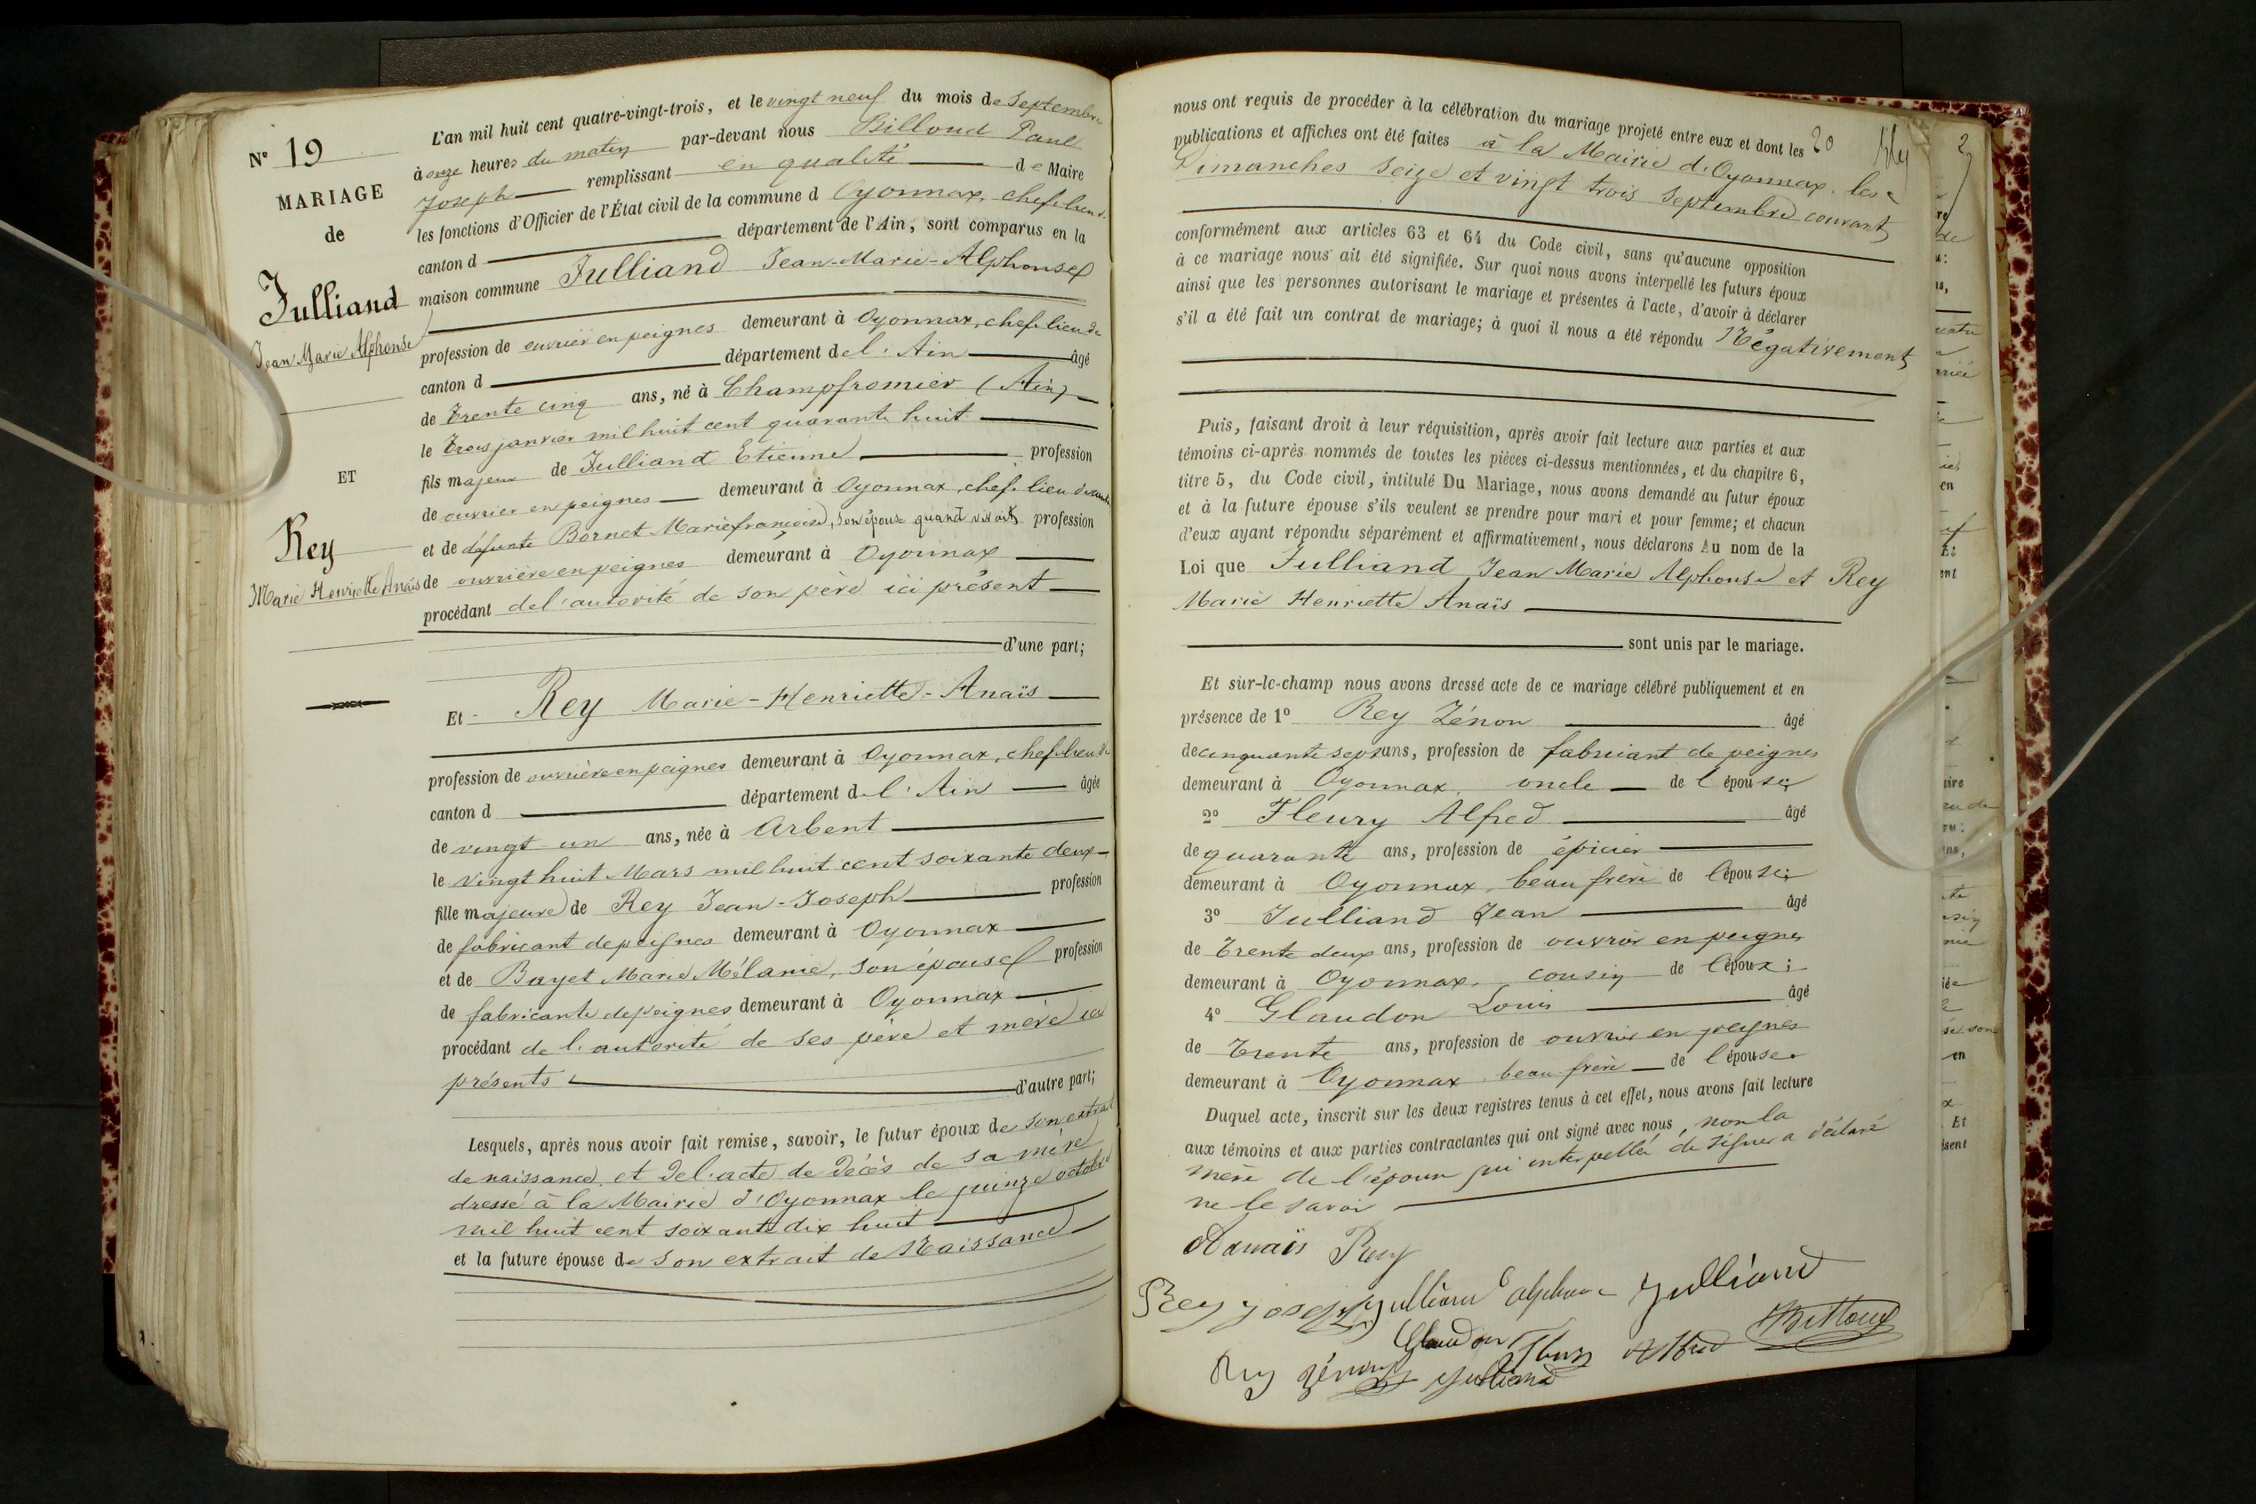 N° 19
MARIAGE
de
Julliand
Jean Marie Alphonse
ET
Rey
Marie Henriette Anaïs
L'an mil huit cent quatre-vingt-trois, et le vingt neuf du mois de Septembre
à onze heures du matin par-devant nous Billoud Paul
Joseph remplissant en qualité de Maire
les fonctions d'Officier de l'État civil de la commune d Oyonnax, chef-lieu de
canton d département de l'Ain, sont comparus en la
maison commune Julliand Jean-Marie-Alphonse
profession de ouvrier en peignes demeurant à Oyonnax, chef-lieu de
canton d département de l'Ain âgé
de trente cinq ans, né à Champfromier (Ain)
le trois janvier mil huit cent quarante huit
fils majeur de Julliand Etienne profession
de ouvrier en peignes demeurant à Oyonnax, chef-lieu de canton
et de défunte Bornet Marie françoise, son épouse quand vivait, profession
de ouvrière en peignes demeurant à Oyonnax
procédant de l'autorité de son père ici présent
d'une part;
Et Rey Marie-Henriette-Anaïs
profession de ouvrière en peignes demeurant à Oyonnax, chef-lieu de
canton d département de l'Ain âgée
de vingt un ans, née à Arbent
le vingt huit Mars mil huit cent soixante deux
fille majeure de Rey Jean-Joseph profession
de fabricant de peignes demeurant à Oyonnax
et de Bayet Marie Mélanie, son épouse profession
de fabricante de peignes demeurant à Oyonnax
procédant de l'autorité de ses père et mère ici
présents d'autre part;
Lesquels, après nous avoir fait remise, savoir, le futur époux de son extrait
de naissance, et de l'acte de décès de sa mère
dressé à la Mairie d'Oyonnax le quinze octobre
mil huit cent soixante dix huit
et la future épouse de son extrait de Naissance
nous ont requis de procéder à la célébration du mariage projeté entre eux et dont les 20
publications et affiches ont été faites à la Mairie d'Oyonnax les
Dimanches seize et vingt trois Septembre courant
conformément aux articles 63 et 64 du Code civil, sans qu'aucune opposition
à ce mariage nous ait été signifiée. Sur quoi nous avons interpellé les futurs époux
ainsi que les personnes autorisant le mariage et présentes à l'acte, d'avoir à déclarer
s'il a été fait un contrat de mariage; à quoi il nous a été répondu Négativement
Puis, faisant droit à leur réquisition, après avoir fait lecture aux parties et aux
témoins ci-après nommés de toutes les pièces ci-dessus mentionnées, et du chapitre 6,
titre 5, du Code civil, intitulé Du Mariage, nous avons demandé au futur époux
et à la future épouse s'ils veulent se prendre pour mari et pour femme; et chacun
d'eux ayant répondu séparément et affirmativement, nous déclarons Au nom de la
Loi que Julliand Jean Marie Alphonse et Rey
Marie Henriette Anaïs
sont unis par le mariage.
Et sur-le-champ nous avons dressé acte de ce mariage célébré publiquement et en
présence de 1° Rey Zénon âgé
de cinquante sept ans, profession de fabricant de peignes
demeurant à Oyonnax, oncle de l'épouse;
2° Fleury Alfred âgé
de quarante ans, profession de épicier
demeurant à Oyonnax, beau frère de l'épouse;
3° Julliand Jean âgé
de trente deux ans, profession de ouvrier en peignes
demeurant à Oyonnax, cousin de l'époux;
4° Glaudon Louis âgé
de trente ans, profession de ouvrier en peignes
demeurant à Oyonnax, beau frère de l'épouse.
Duquel acte, inscrit sur les deux registres tenus à cet effet, nous avons fait lecture
aux témoins et aux parties contractantes qui ont signé avec nous, non la
mère de l'épouse qui interpellée de signer a déclaré
ne le savoir
Anaïs Rey
Rey Joseph Julliand alphonse Julliand
Glaudon Fleury Alfred Billoud
Rey Zénon Julliand